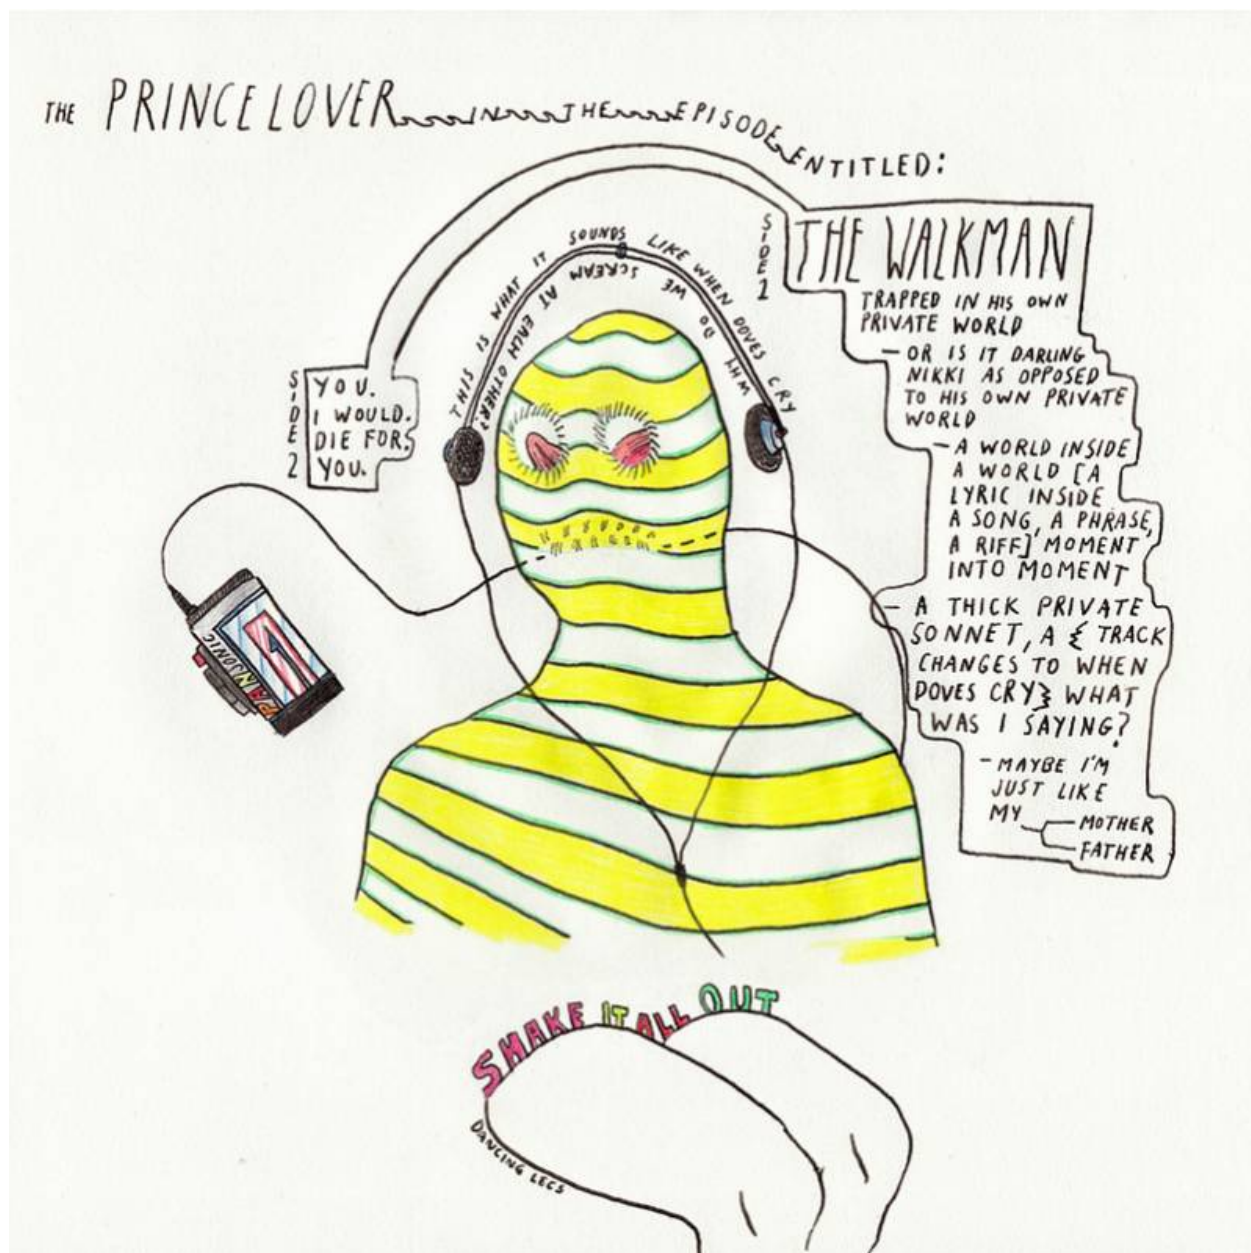 THE PRINCE LOVER IN THE EPISODE ENTITLED:
SIDE 1
THE WALKMAN
TRAPPED IN HIS OWN
PRIVATE WORLD
- OR IS IT DARLING
NIKKI AS OPPOSED
TO HIS OWN PRIVATE
WORLD
- A WORLD INSIDE
A WORLD [A
LYRIC INSIDE
A SONG, A PHRASE,
A RIFF] MOMENT
INTO MOMENT
- A THICK PRIVATE
SONNET, A { TRACK
CHANGES TO WHEN
DOVES CRY} WHAT
WAS I SAYING?
- MAYBE I'M
JUST LIKE
MY MOTHER
FATHER
THIS IS WHAT IT SOUNDS LIKE WHEN DOVES CRY
WHY DO WE SCREAM AT EACH OTHER?
SIDE 2
YOU.
I WOULD.
DIE FOR.
YOU.
PANSONIC
SHAKE IT ALL OUT
DANCING LEGS